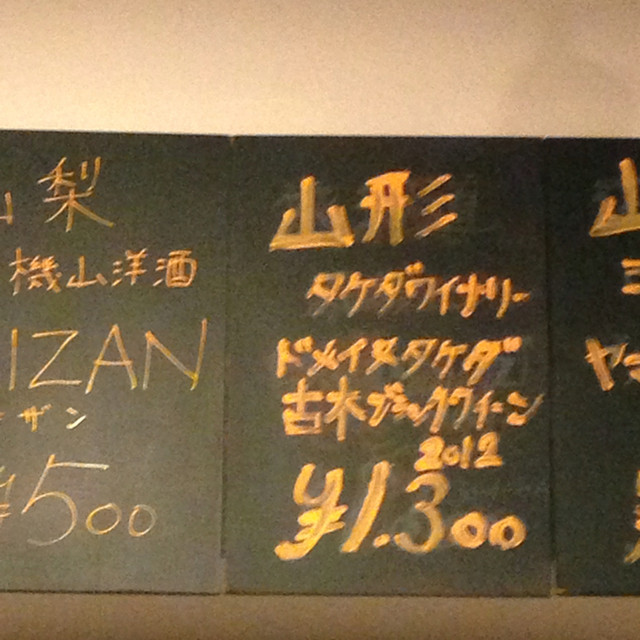 山梨
機山洋酒
IZAN
ーザン
¥500
山形
タケダワイナリー
ドメイヌタケダ
古木ブラッククイーン
2012
¥1.300
山
ヤマ